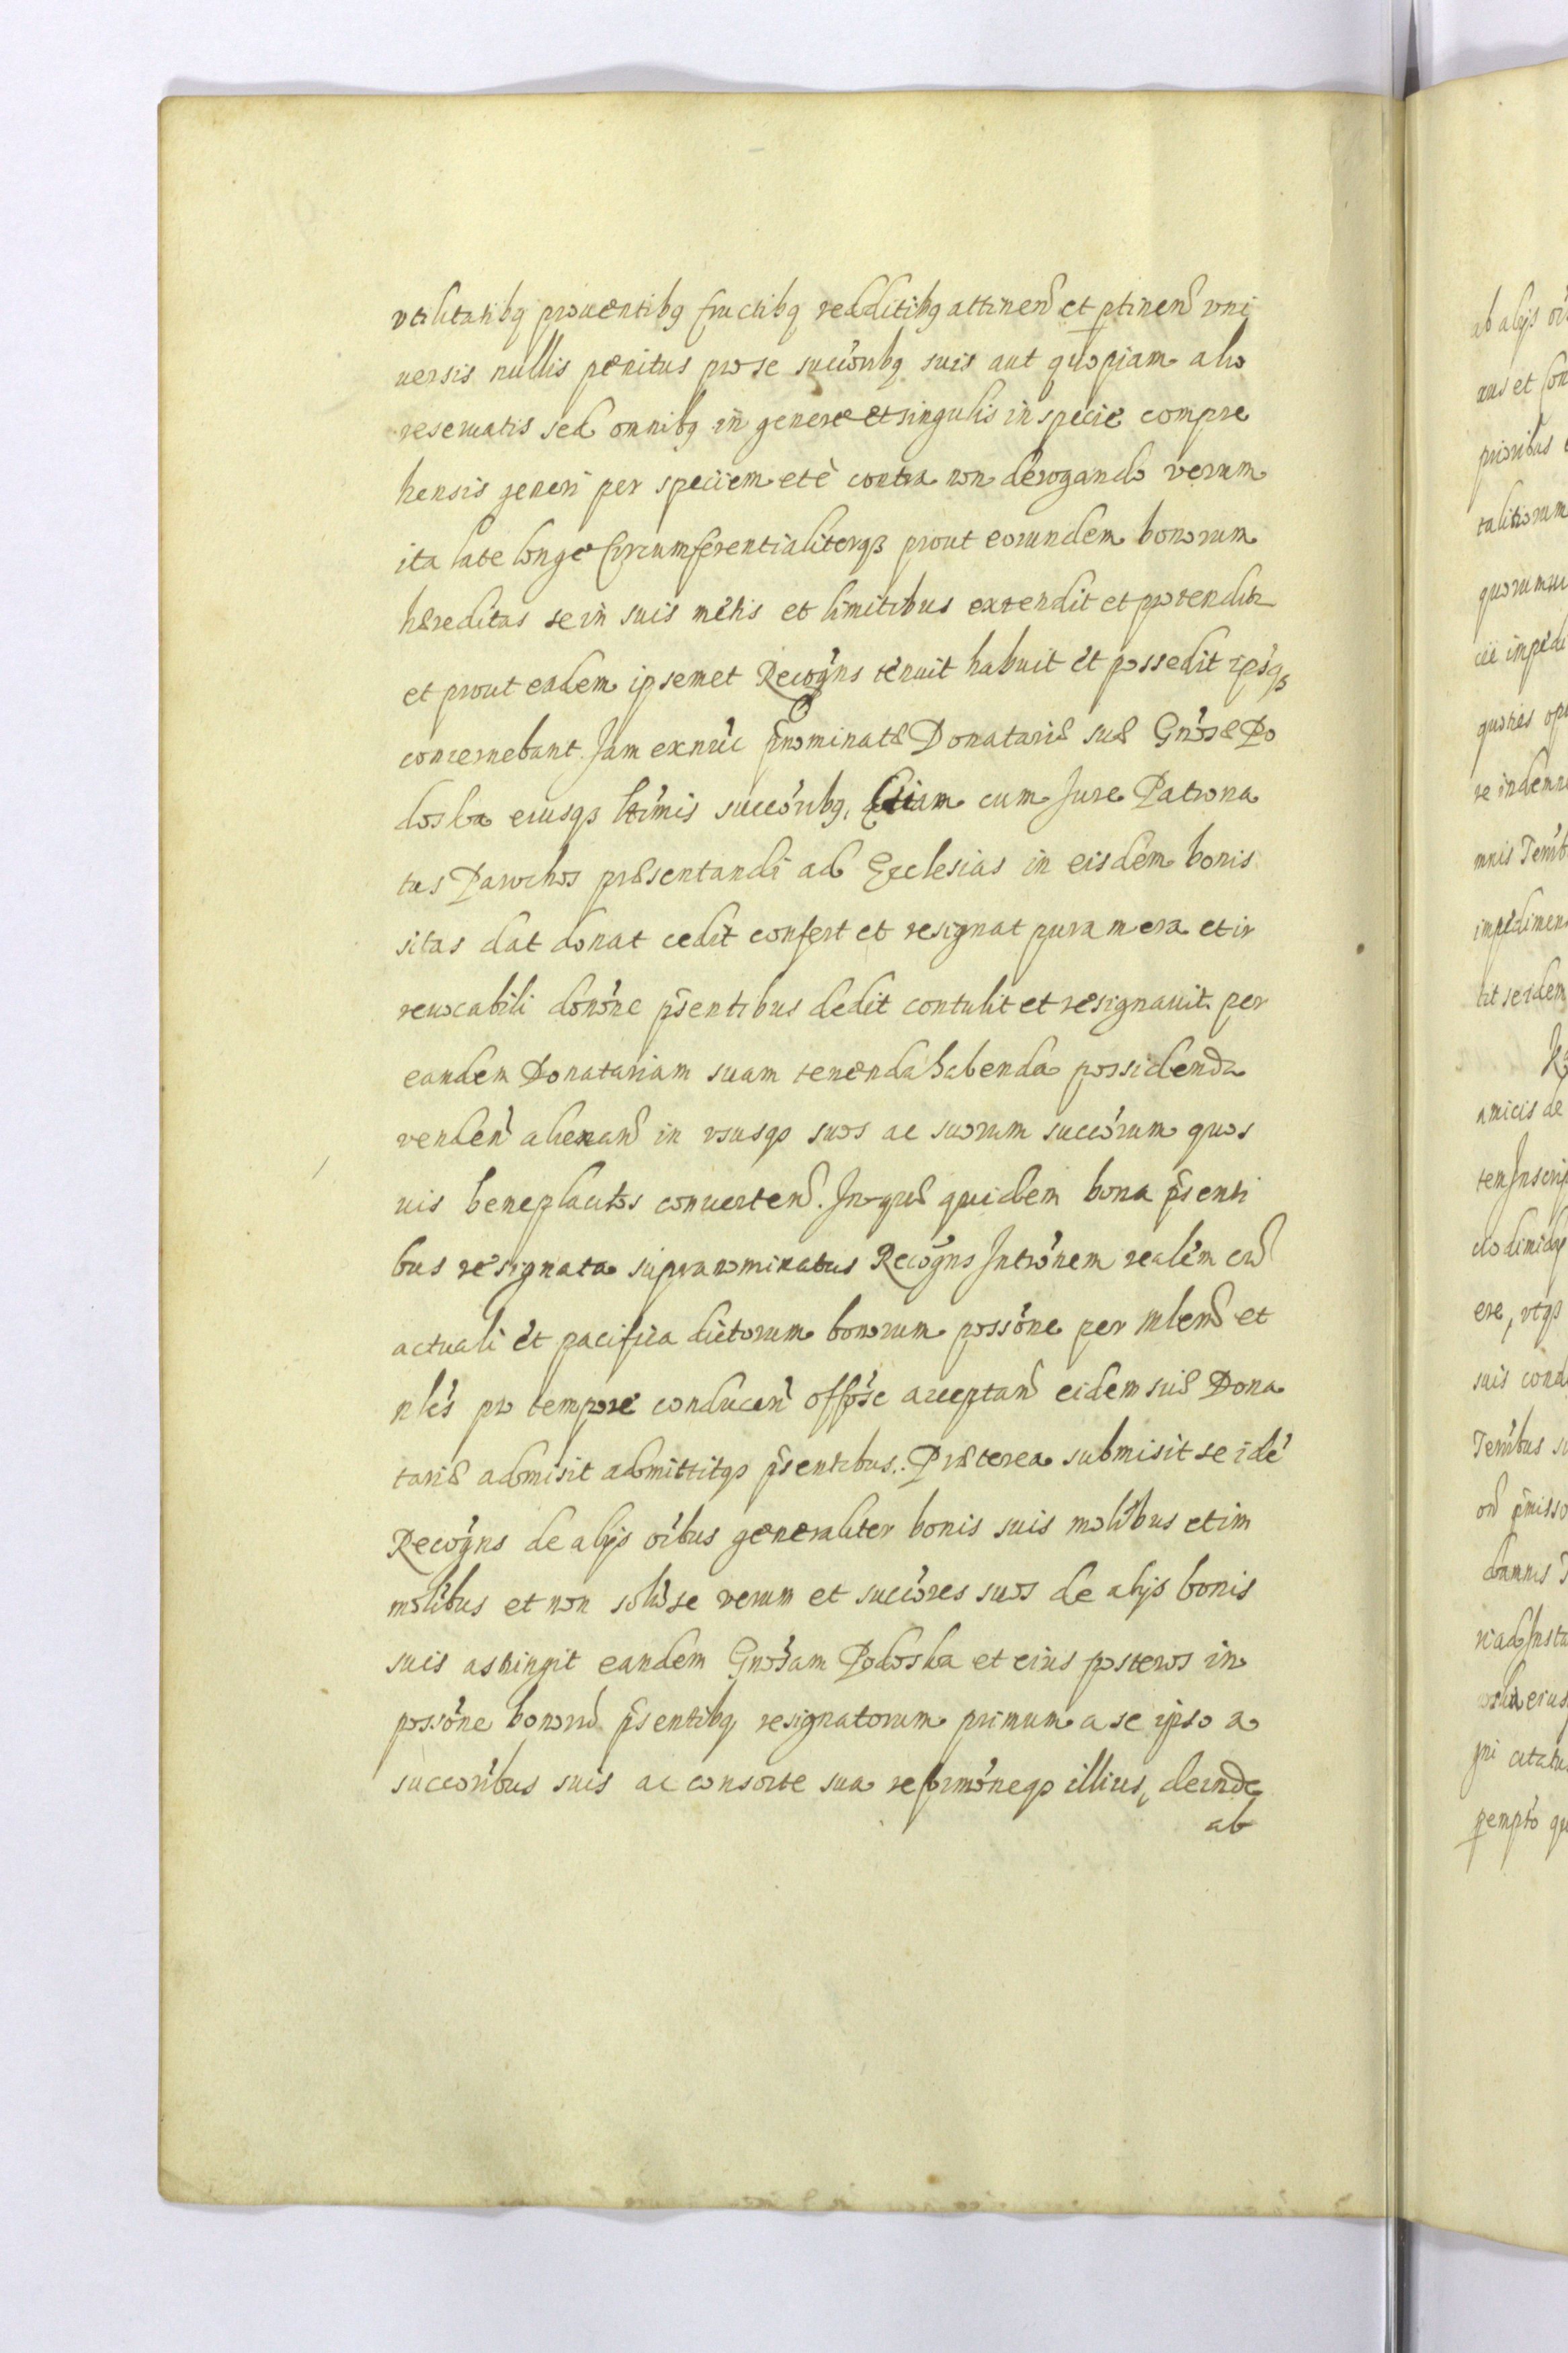 vtilitatibq prouentibq fructibq redditibq attinen et ptinen vni
uersis nullis penitus pro se succoribq suis aut quopiam alio
reseruatis sed omnibq in genere et singulis in specie compre
hensis generi per speciem et è contra non derogando verum
ita late longe circumferentialiterqs prout eorundem bonorum
hæreditas se in suis metis et limitibus extendit et protendit
et prout eadem ipsemet Recogns tenuit habuit et possedit ipsuqs
concernebant. Jam exnuc pnominatæ Donatariæ suæ Gnosæ Po
doska eiusqs ltimis succoribq, Etiam cum Jure Patrona
tus Parochos præsentandi ad Ecclesias in eisdem bonis
sitas dat donat cedit confert et resignat pura mera et ir
reuocabili donone psentibus dedit contulit et resignauit per
eandem Donatariam suam tenenda habenda possidenda
venden alienan in vsusqs suos ac suorum succorum quos
uis beneplacitos conuerten. In quæ quidem bona psenti
bus resignata supranominatus Recogns Intronem realem cu
actuali et pacifica dictorum bonorum possone per mlen et
nles pro tempore conducen offose acceptan eidem suæ Dona
tariæ admisit admittitqs psentibus. Præterea submisit se ide
Recogns de alijs oibus generaliter bonis suis molibus et im
molibus et non solu se verum et succores suos de alijs bonis
suis astringit eandem Gnosam Podoska et eius posteros in
possone bonoru psentibq resignatorum primum a se ipso a
succoribus suis ac consorte sua reformoneqs illius, deinde
ab
ab alijs
prioribus
talitiorum
amicis de
suis